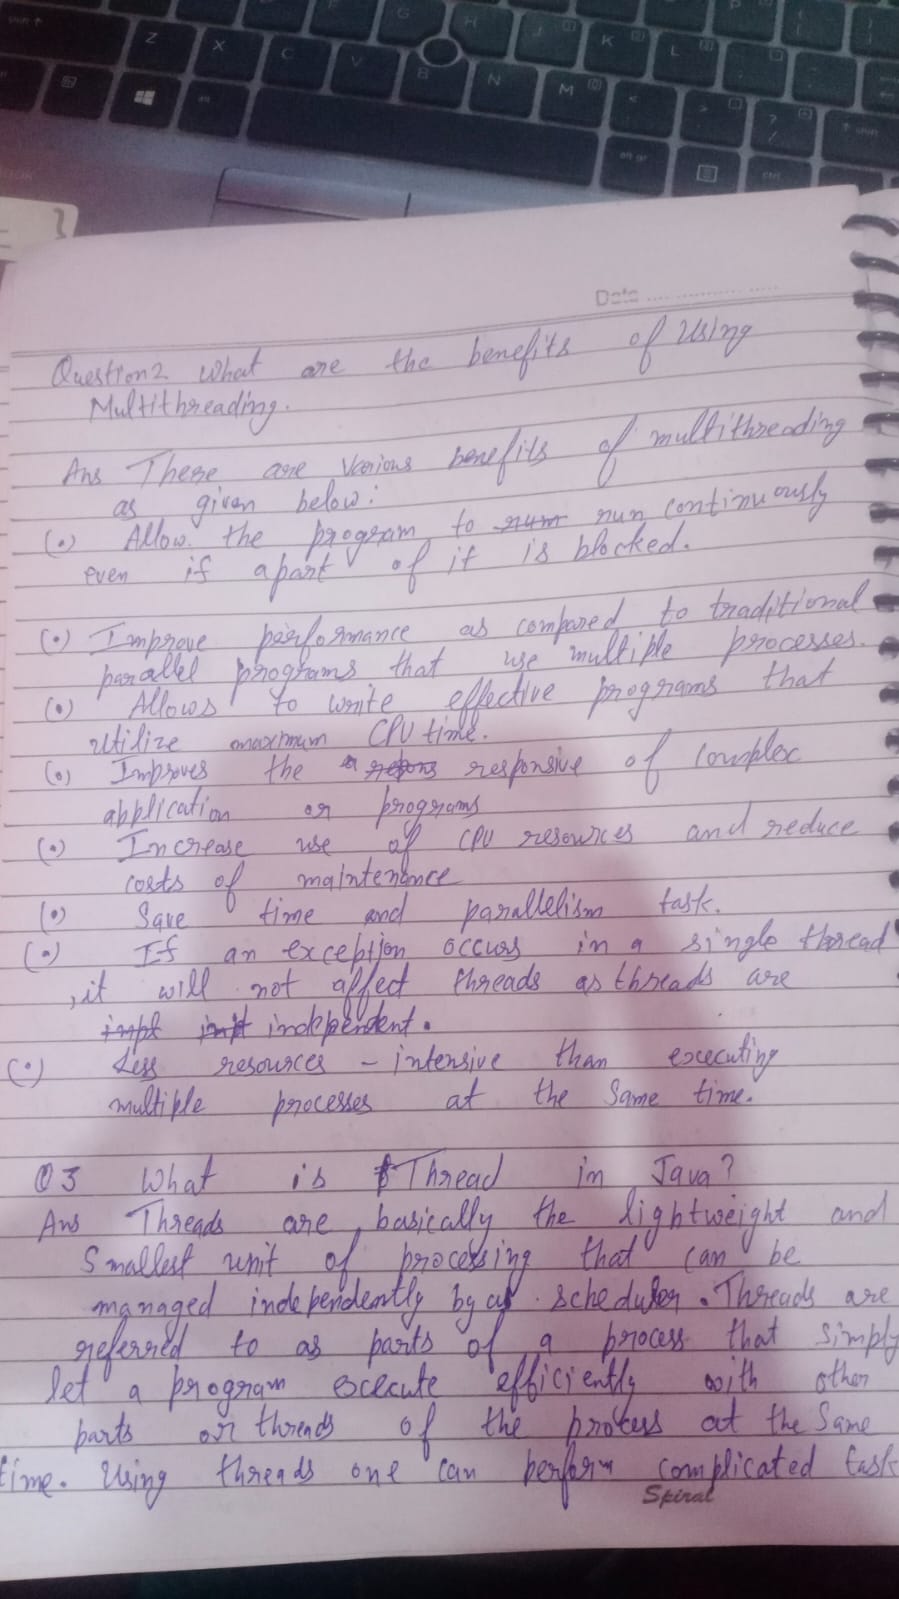 Date
Question 2 What are the benefits of Using
Multithreading.
Ans There are Various benefits of multithreading
as given below:
(•) Allow the program to run run continuously
even if a part of it is blocked.
(•) Improve performance as compared to traditional
parallel programs that use multiple processes.
(•) Allows to write effective programs that
utilize maximum CPU time.
(•) Improves the responsive of complex
application or programs
(•) Increase use of CPU resources and reduce
costs of maintenance
(•) Save time and parallelism task.
(•) If an exception occurs in a single thread
, it will not affect threads as threads are
independent.
(•) Less resources - intensive than executing
multiple processes at the same time.
Q3 What is Thread in Java?
Ans Threads are basically the lightweight and
Smallest unit of processing that can be
managed independently by a scheduler. Threads are
referred to as parts of a process that simply
let a program execute efficiently with other
parts or threads of the process at the Same
time. Using threads one can perform complicated task
Spiral